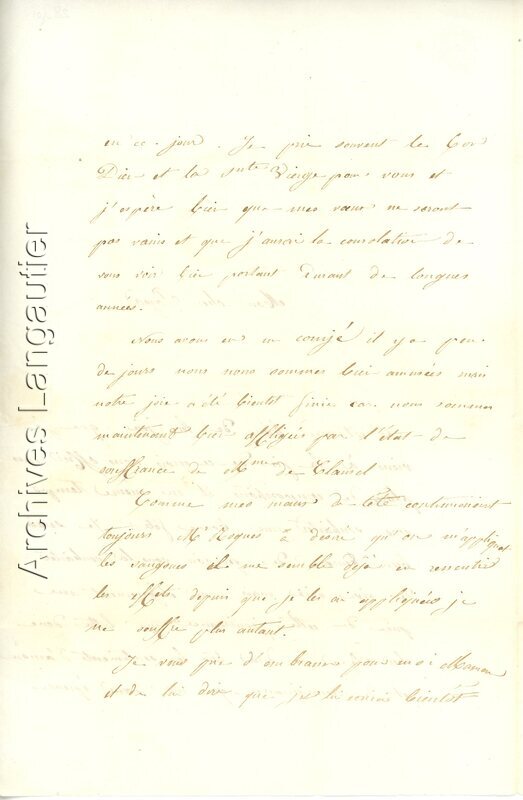 en ce jour. Je prie souvent le bon
Dieu et la Ste Vierge pour vous et
j'espère bien que mes vœux ne seront
pas vains et que j'aurai la consolation de
vous voir bien portant durant de longues
années.
Nous avons eu un congé il y a peu
de jours nous nous sommes bien amusées mais
notre joie a été bientôt finie car nous sommes
maintenant bien affligées par l'état de
souffrance de Mme de Clausel
Comme mes maux de tête continuaient
toujours Mr Roques a désiré qu'on m'appliquat
les sangsues il me semble déjà en ressentir
les effets depuis que je les ai appliquées je
ne souffre plus autant.
Je vous prie d'embrasser pour moi Maman
et de lui dire que je lui bientôt
Archives Langautier